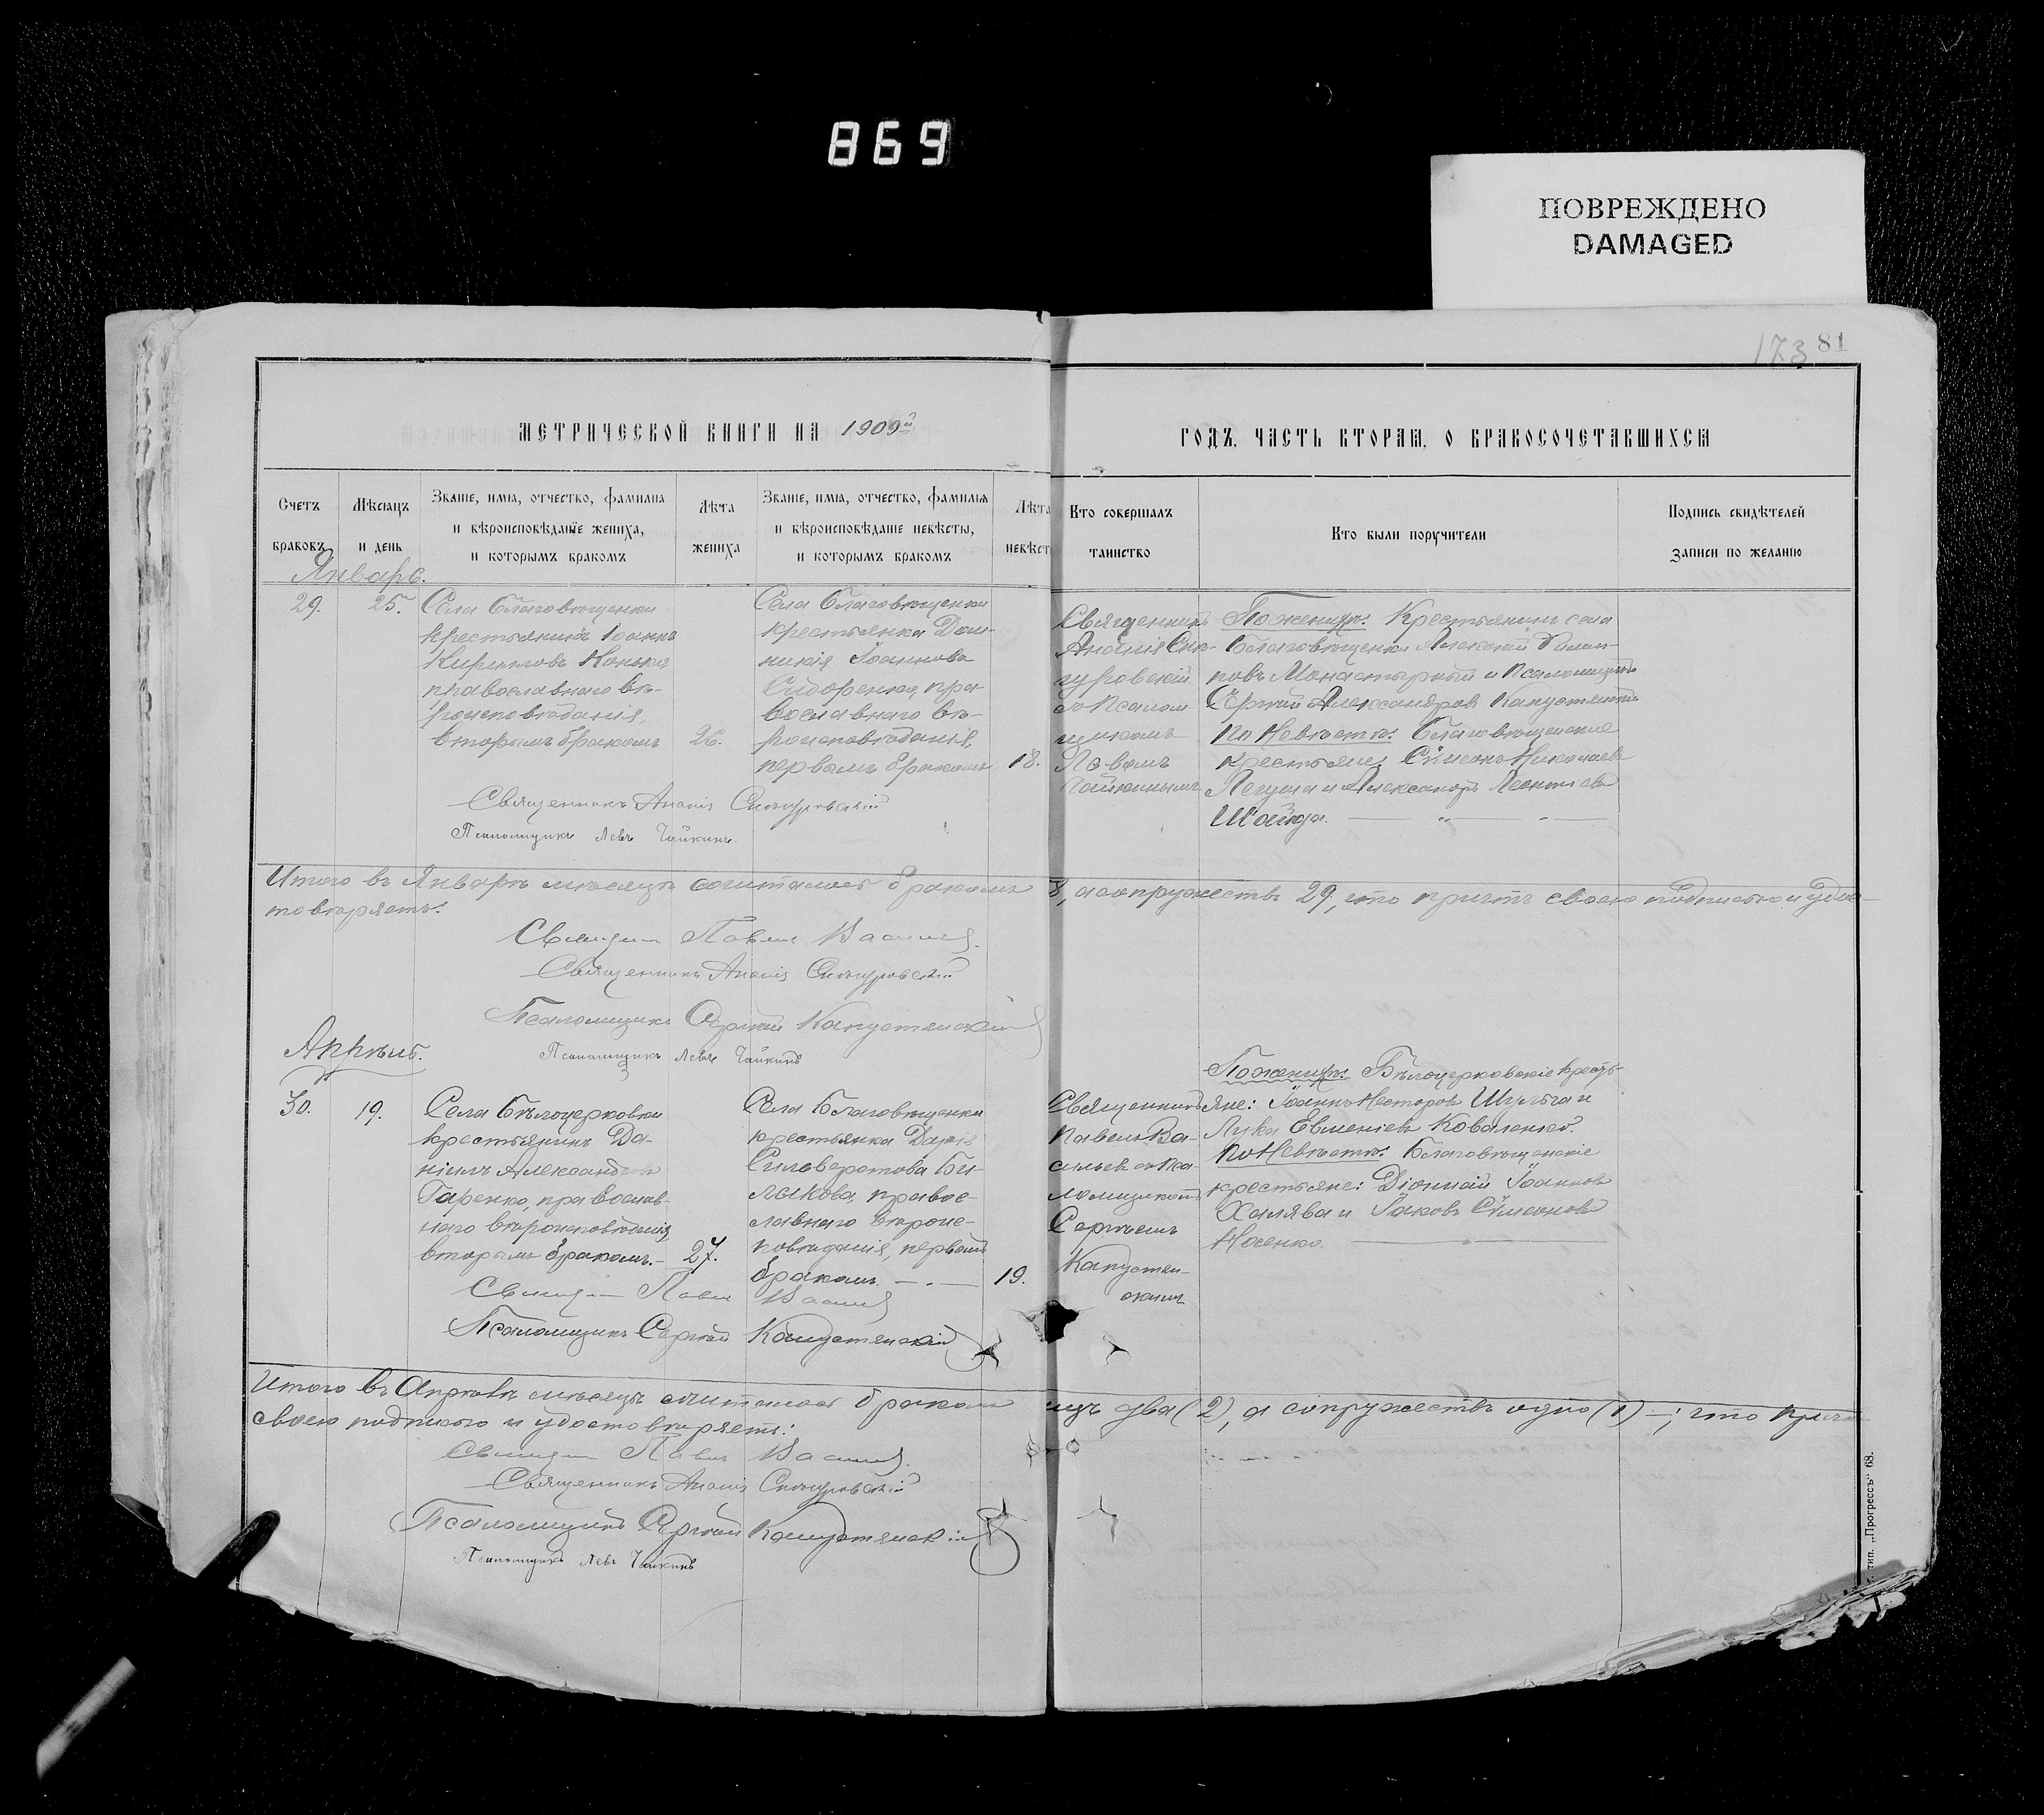 869
ПОВРЕЖДЕНО
DAMAGED
173 81
МЕТРИЧЕСКОЙ КНИГИ НА 1909й
ГОДЪ, ЧАСТЬ ВТОРАЯ, О БРАКОСОЧЕТАВШИХСЯ
Счетъ браковъ
Мѣсяцъ и день
Званіе, имя, отчество, фамилія
и вѣроисповѣданіе жениха,
и которымъ бракомъ
Лѣта жениха
Званіе, имя, отчество, фамилія
и вѣроисповѣданіе невѣсты,
и которымъ бракомъ
Лѣта невѣст
Кто совершалъ
таинство
Кто были поручители
Подпись свидѣтелей
записи по желанію
Январь.
29.
25.
Села Благовѣщенки
крестьянинъ Іоаннъ
Кирилловъ
православнаго вѣ-
роисповѣданія,
вторымъ бракомъ
26.
Села Благовѣщенки
крестьянка Дом-
никія Іоаннова
Сидоренко, пра-
вославнаго вѣ-
роисповѣданія,
первымъ бракомъ
18.
Священникъ
Ананія Сни-
гуровскій
съ Псалом-
щикомъ
Львомъ
Чайкинымъ
По женихѣ: Крестьянинъ села
Благовѣщенки Алексѣй
Монастырный и Псаломщикъ
Сергѣй Александровъ Капустянскій
По Невѣстѣ: Благовѣщенскіе
крестьяне: Сѵмеонъ Николаевъ
и Александръ Леонтіевъ
Шайда.
Священникъ Ананія Снигуровскій
Псаломщикъ Левъ Чайкинъ.
Итого въ Январѣ мѣсяцѣ сочиталось бракомъ
, а супружествъ 29, что причтъ своею подписью и удос-
товѣряетъ:
Священникъ Павелъ Васильевъ.
Священникъ Ананія Снигуровскій
Псаломщикъ Сергѣй Капустянскій
Псаломщикъ Левъ Чайкинъ
Апрѣль.
30.
19.
Села Бѣлоцерковки
крестьянинъ Да-
ніилъ Александровъ
Гаренко, православ-
наго вѣроисповѣданія,
вторымъ бракомъ.
27.
Села Благовѣщенки
крестьянка Дарія
Сильверстова Би-
лыкова, правос-
лавнаго вѣроис-
повѣданія, первымъ
бракомъ.
19.
Священникъ
Павелъ Ва-
сильевъ съ Пса-
ломщикомъ
Сергѣемъ
Капустян-
скимъ
По женихѣ: Бѣлоцерковскіе кресть-
яне: Іоаннъ Несторовъ Шульга и
Лука Евменіевъ Коваленко.
По Невѣстѣ: Благовѣщенскіе
крестьяне: Діонисій Іоанновъ
Халява и Іаковъ Сѵмеоновъ
Носенко.
Священникъ Павелъ Васильевъ
Псаломщикъ Сергѣй Капустянскій
Итого въ Апрѣлѣ мѣсяцѣ сочиталось бракомъ
лицъ два (2), а супружествъ одно (1) —; что причтъ
своею подписью и удостовѣряетъ:
Священникъ Павелъ Васильевъ.
Священникъ Ананія Снигуровскій
Псаломщикъ Сергѣй Капустянскій
Псаломщикъ Левъ Чайкинъ
тип. „Прогрессъ“ 68.